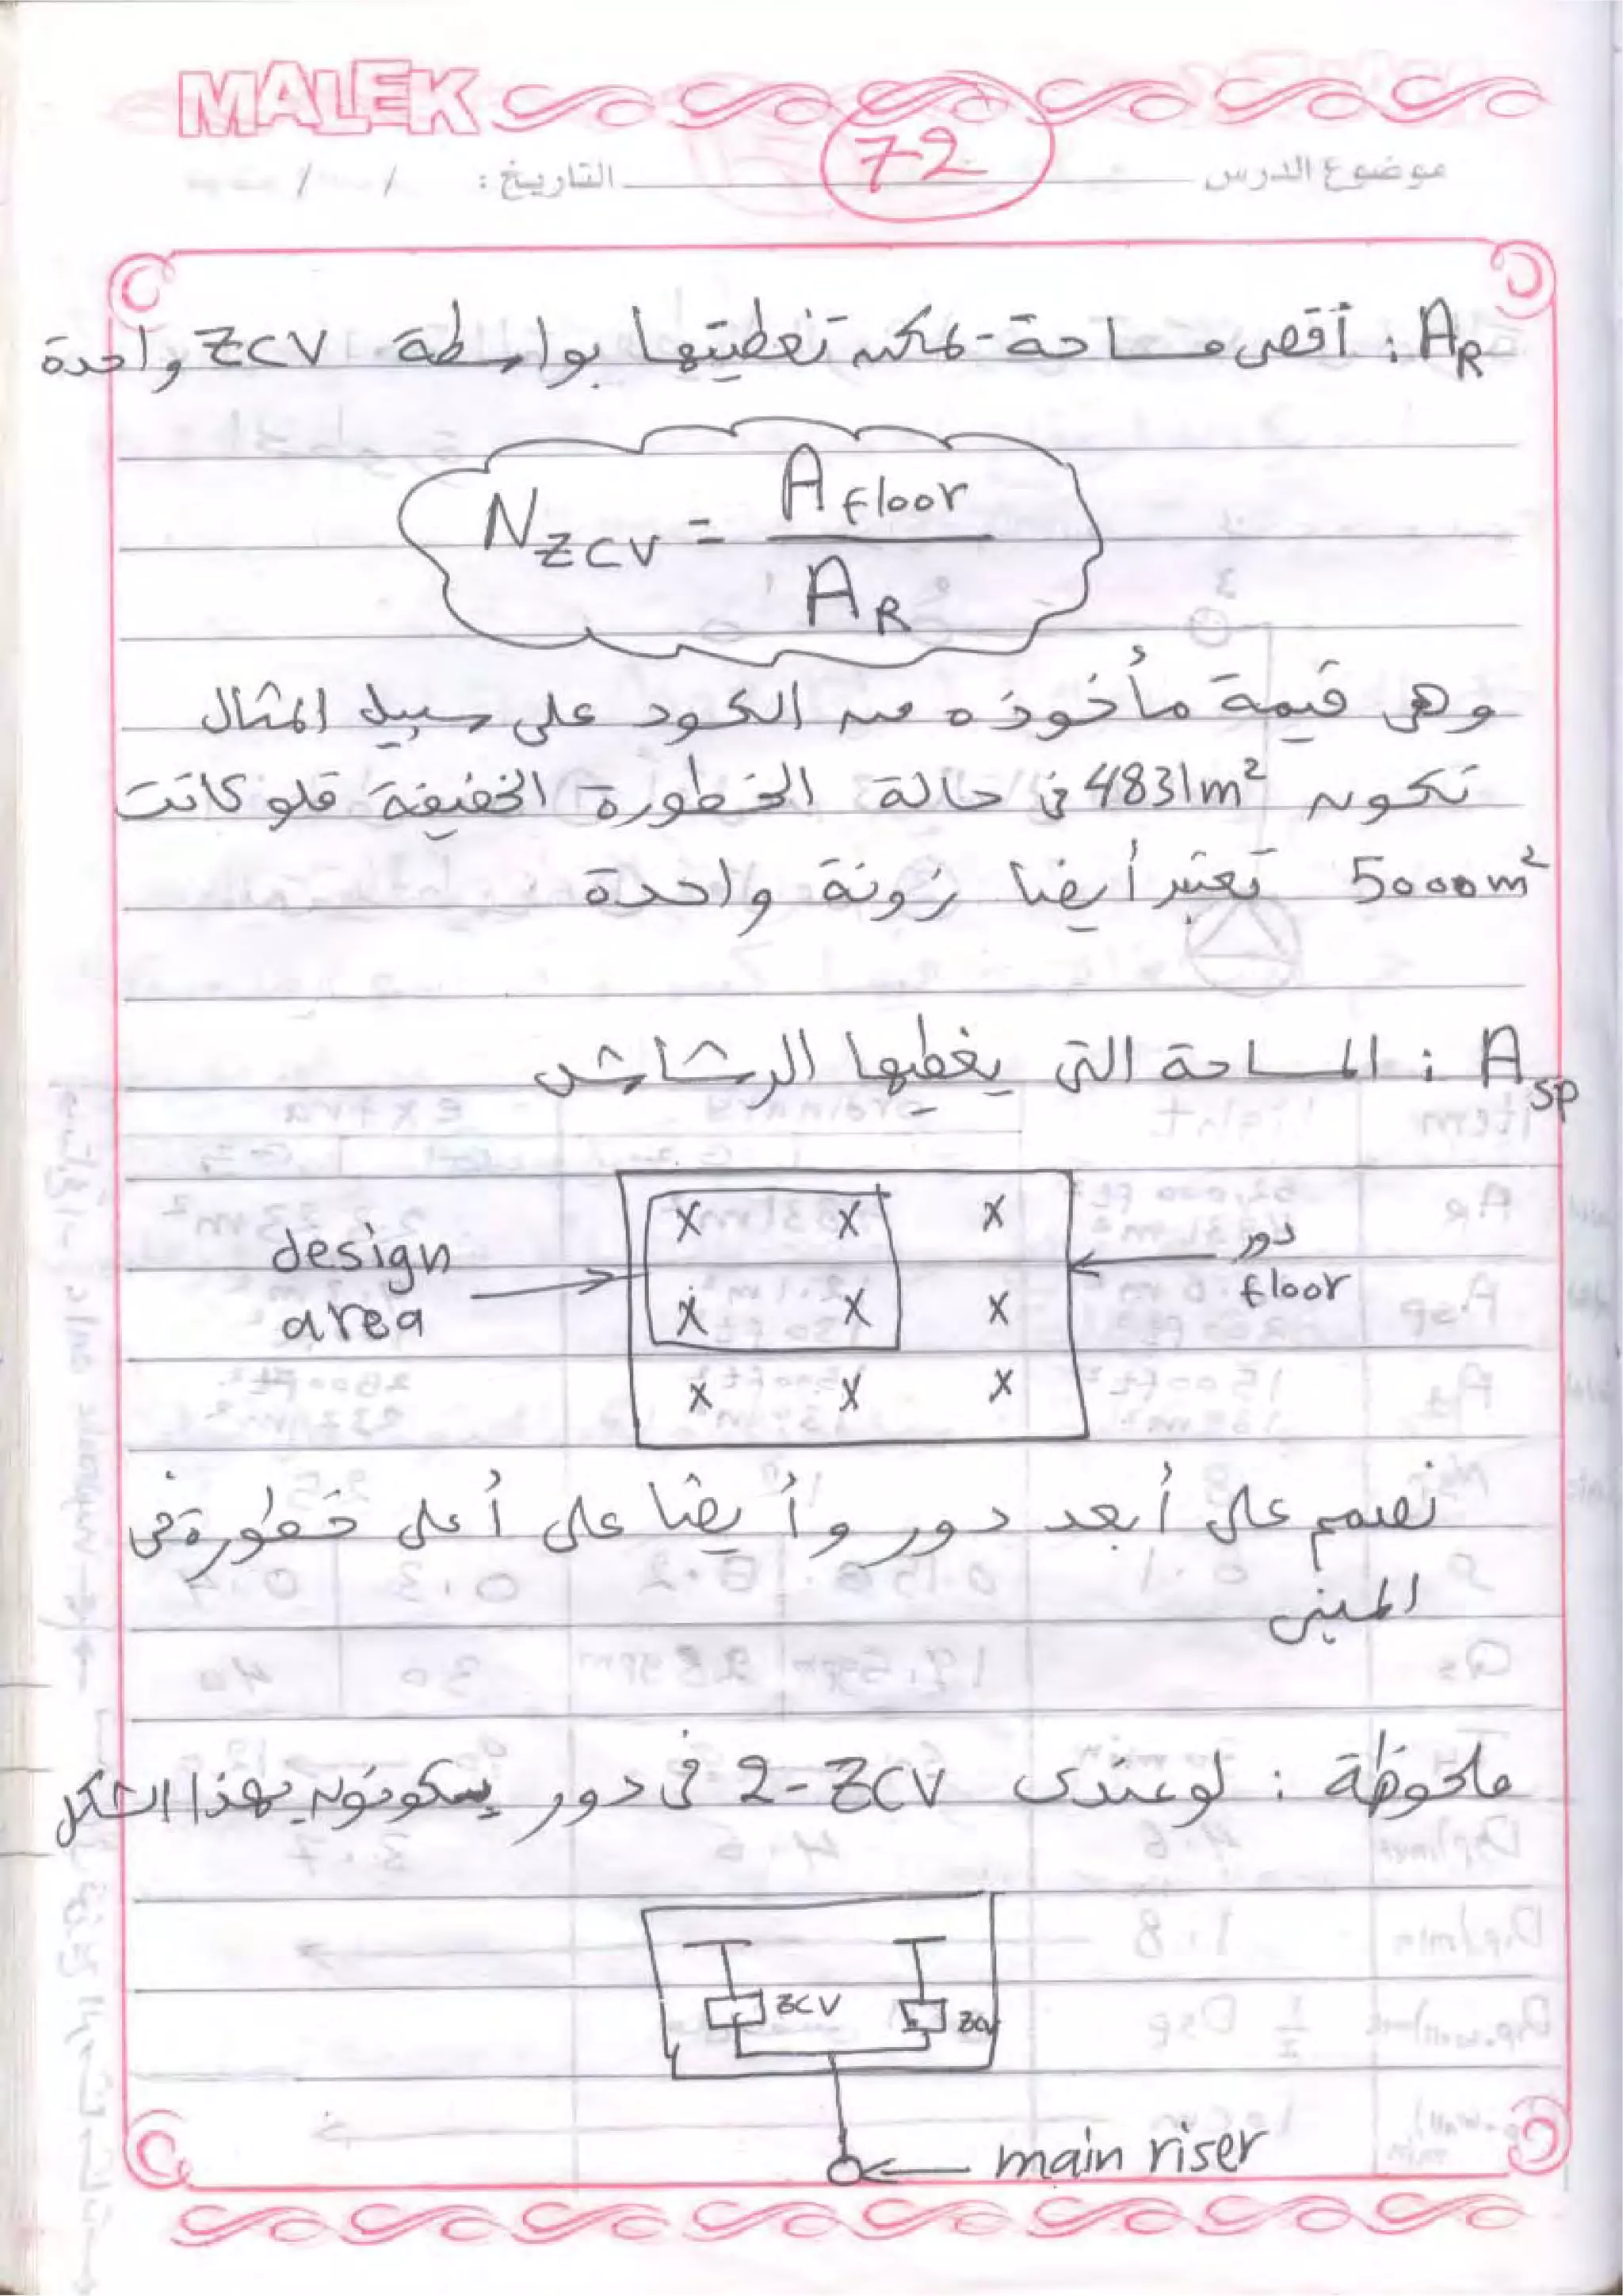 MALEK
72
موضوع الدرس
التاريخ: / /
AR : أقصى مساحة يمكن تغطيتها بواسطة ZCV واحدة
NZCV = A floor / AR
وهى قيمة مأخوذه من الكود على سبيل المثال
تكون 4831m² فى حالة الخطورة الخفيفة فلو كانت
5000m² تعتبر أيضا زونة واحدة
Asp : المساحة التى يغطيها الرشاش
x x x
design area
دور
floor
x x x
x x x
نصمم على أبعد دور وأيضا على أعلى خطورة فى
المبنى
ملحوظة : لو عندى 2-ZCV فى دور يبكونون بهذا الشكل
ZCV ZCV
main riser